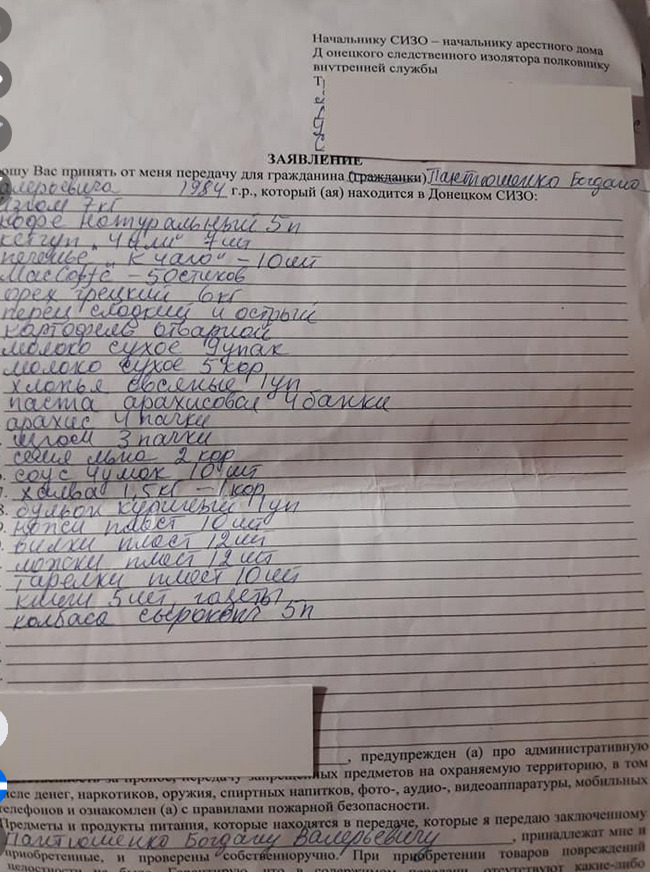 Начальнику СИЗО – начальнику арестного дома
Д онецкого следственного изолятора полковнику
внутренней службы
Т
ЗАЯВЛЕНИЕ
ошу Вас принять от меня передачу для гражданина (гражданки) Пантюшенко Богдана
алерьевича 1984 г.р., который (ая) находится в Донецком СИЗО:
изюм 7кг
кофе натуральный 5п
кетчуп "Чили" 7шт
печенье "К чаю" – 10шт
MacCoffe – 50стиков
орех грецкий 6кг
перец сладкий и острый
картофель отварной
молоко сухое 9упак
молоко сухое 5кор
хлопья овсяные 1уп
паста арахисовая 4банки
арахис 4пачки
3пачки
семя льна 2кор
соус чумак 10шт
7. халва 1,5кг – 1кор
8. бульон куриный 1уп
ножи пласт 10шт
вилки пласт 12шт
ложки пласт 12шт
тарелки пласт 10шт
книги 5шт, газеты
колбаса сырокопч 5п
, предупрежден (а) про административную
за пронос, передачу запрещенных предметов на охраняемую территорию, в том
исле денег, наркотиков, оружия, спиртных напитков, фото-, аудио-, видеоаппаратуры, мобильных
телефонов и ознакомлен (а) с правилами пожарной безопасности.
Предметы и продукты питания, которые находятся в передаче, которые я передаю заключенному
Пантюшенко Богдану Валерьевичу, принадлежат мне и
приобретенные, и проверены собственноручно. При приобретении товаров повреждений
целостности не было. Гарантирую, что в содержимом передачи отсутствуют какие-либо